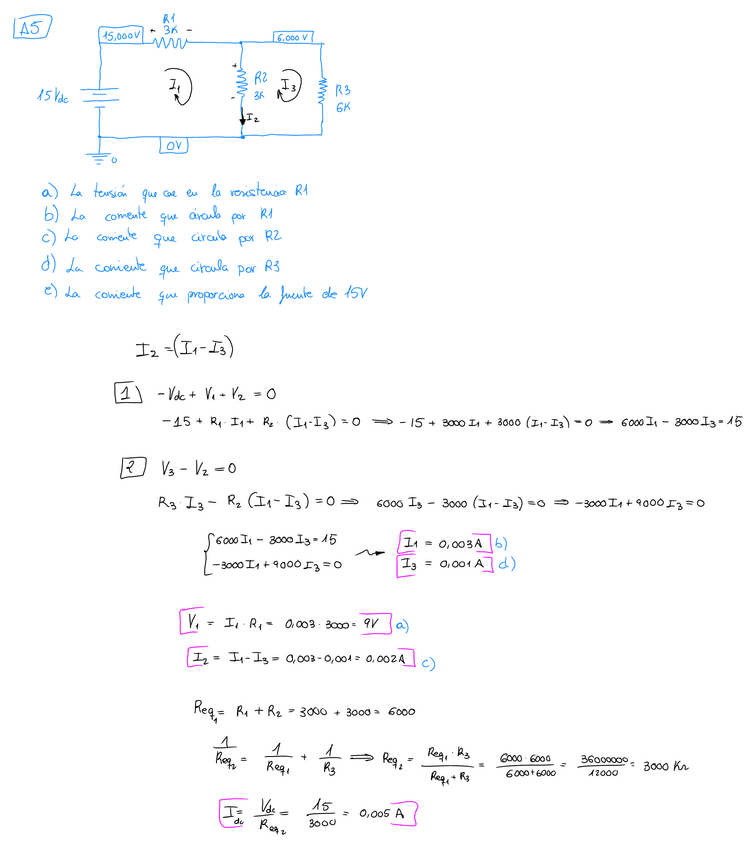 A5
15,000V
R1
3K
+ -
6.000V
15Vdc
I1
+
-
R2
3K
I3
R3
6K
I2
0V
0
a) La tensión que cae en la resistencia R1
b) La corriente que circula por R1
c) La corriente que circula por R2
d) La corriente que circula por R3
e) La corriente que proporciona la fuente de 15V
I2 = (I1-I3)
1 -Vdc + V1 + V2 = 0
-15 + R1 · I1 + R2 · (I1-I3) = 0 ⟹ -15 + 3000 I1 + 3000 (I1-I3) = 0 ⟹ 6000 I1 - 3000 I3 = 15
2 V3 - V2 = 0
R3 · I3 - R2 (I1-I3) = 0 ⟹ 6000 I3 - 3000 (I1-I3) = 0 ⟹ -3000 I1 + 9000 I3 = 0
6000 I1 - 3000 I3 = 15
-3000 I1 + 9000 I3 = 0
I1 = 0,003 A b)
I3 = 0,001 A d)
V1 = I1 · R1 = 0,003 · 3000 = 9V a)
I2 = I1 - I3 = 0,003 - 0,001 = 0,002A c)
Req1 = R1 + R2 = 3000 + 3000 = 6000
1/Req2 = 1/Req1 + 1/R3 ⟹ Req2 = Req1 · R3 / Req1 + R3 = 6000 · 6000 / 6000 + 6000 = 36000000 / 12000 = 3000 Kn
Idc = Vdc / Req2 = 15 / 3000 = 0,005 A